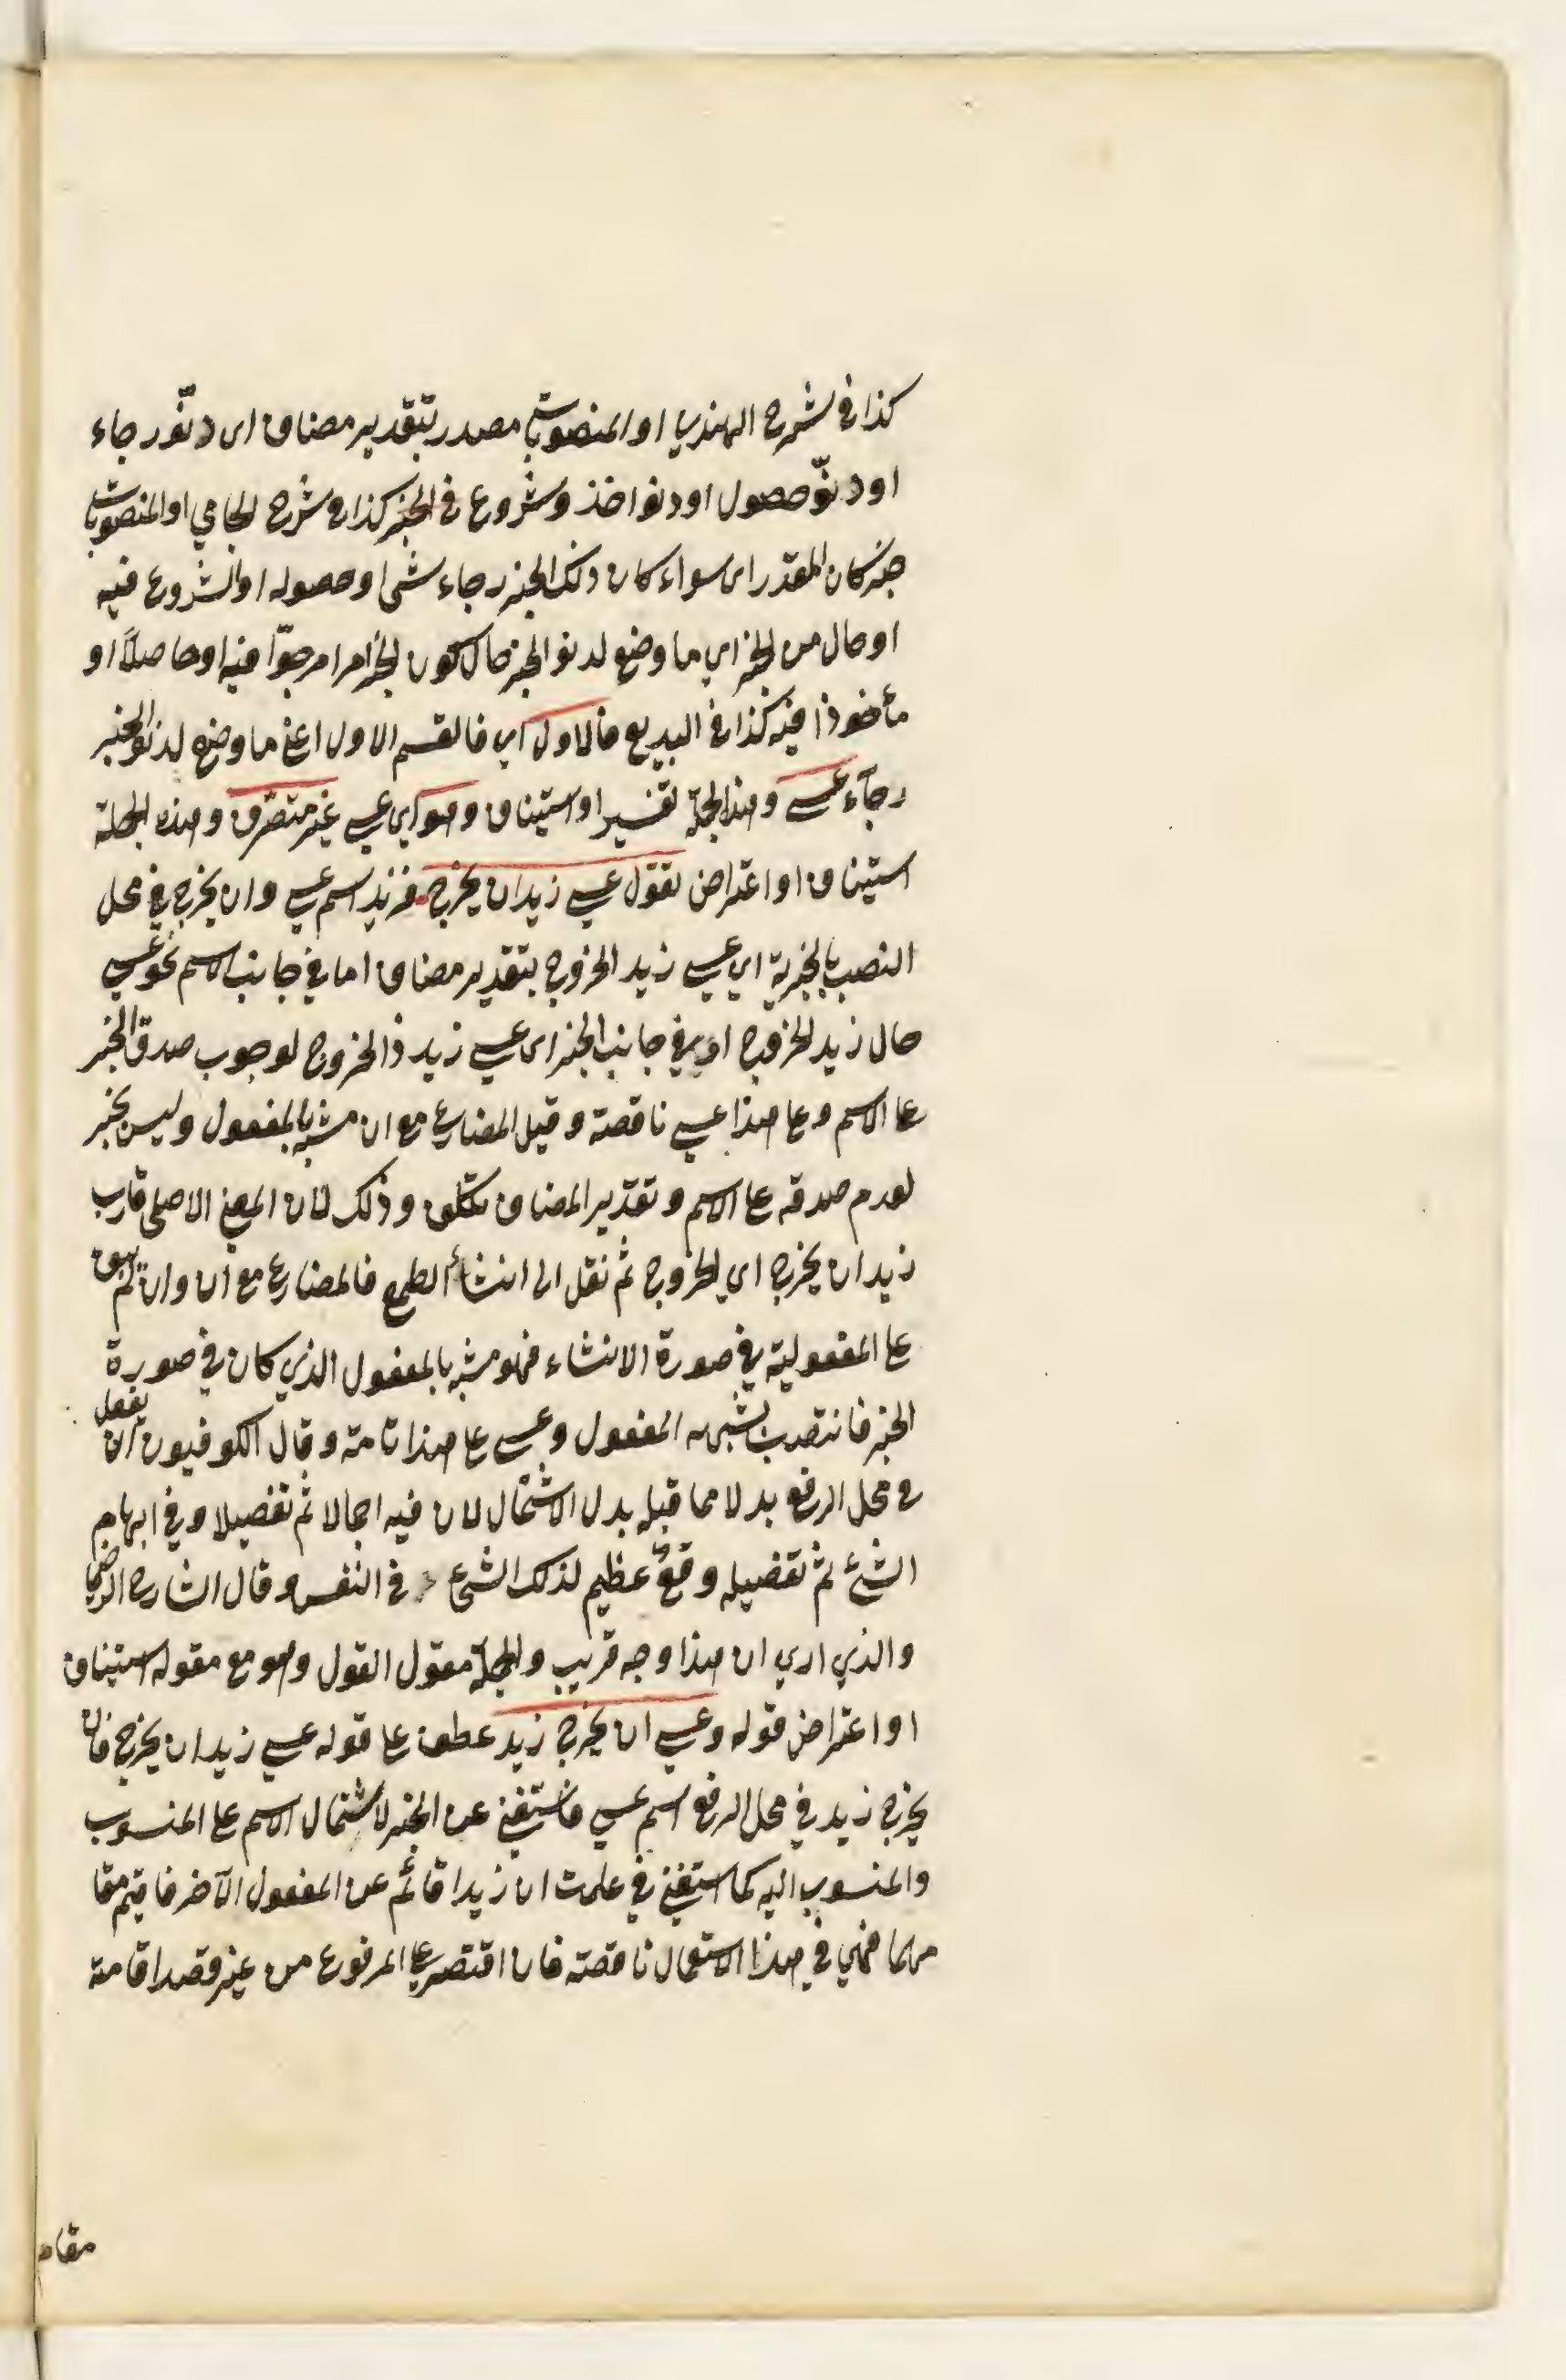 كذا في شرح الهندي او المنصوبات مصدر بتقدير مضاف اى دنوّ رجاء
او دنوّ حصول او دنو اخذ وشروع في الخبر كذا في شرح الجامي او المنصوبات
خبر كان المقدر اى سواء كان ذلك الخبر رجاء شئ او حصوله او الشروع فيه
او حال من الخبر اي ما وضع لدنو الخبر حال كون الخبر امرا مرجوّا فيه او حاصلاً او
مأخوذا فيه كذا في البديع فالاول اي فالقسم الاول اعني ما وضع لدنو الخبر
رجآء عسى وهذا الجملة تفسير او استيناف وهو اي عسى غير متصرّف وهذه الجملة
استيناف او اعتراض تقول عسى زيد ان يخرج فزيد اسم عسى وان يخرج في محل
النصب بالخبرية اي عسى زيد الخروج بتقدير مضاف اما في جانب الاسم نحو عسى
حال زيد الخروج او في جانب الخبر اى عسى زيد ذا الخروج لوجوب صدق الخبر
على الاسم وعلى هذا عسى ناقصة وقيل المضارع مع ان مشبه بالمفعول وليس بخبر
لعدم صدقه على الاسم وتقدير المضاف تكلف وذلك لان المعنى الاصلي قارب
زيد ان يخرج اي الخروج ثم نقل الى انشاء الطمع فالمضارع مع ان وان لم يبق
على المفعولية في صورة الانشاء فهو مشبه بالمفعول الذي كان في صورة
الخبر فانتصب لشبهه المفعول وعسى على هذا تامة وقال الكوفيون ان يفعل
في محل الرفع بدلا مما قبله بدل الاشتمال لان فيه اجمالا ثم تفصيلا وفي ابهام
الشئ ثم تفصيله وقع عظيم لذلك الشئ في النفس وقال الشارح الرضي
والذي اري ان هذا وجه قريب والجملة مقول القول وهو مع مقوله استيناف
او اعتراض قوله وعسى ان يخرج زيد عطف على قوله عسى زيد ان يخرج فان
يخرج زيد في محل الرفع اسم عسى فاستغني عن الخبر لاشتمال الاسم على المنسوب
والمنسوب اليه كما استغني في علمت ان زيدا قائم عن المفعول الآخر فاقيم مقا
مهما فهي في هذا الاستعمال ناقصته فان اقتصر على المرفوع من غير قصد اقامة
مقام